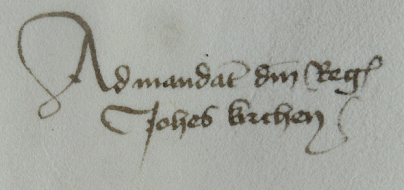 Ad mandat̄ dm̄ Reg
Joh̄es kirchen